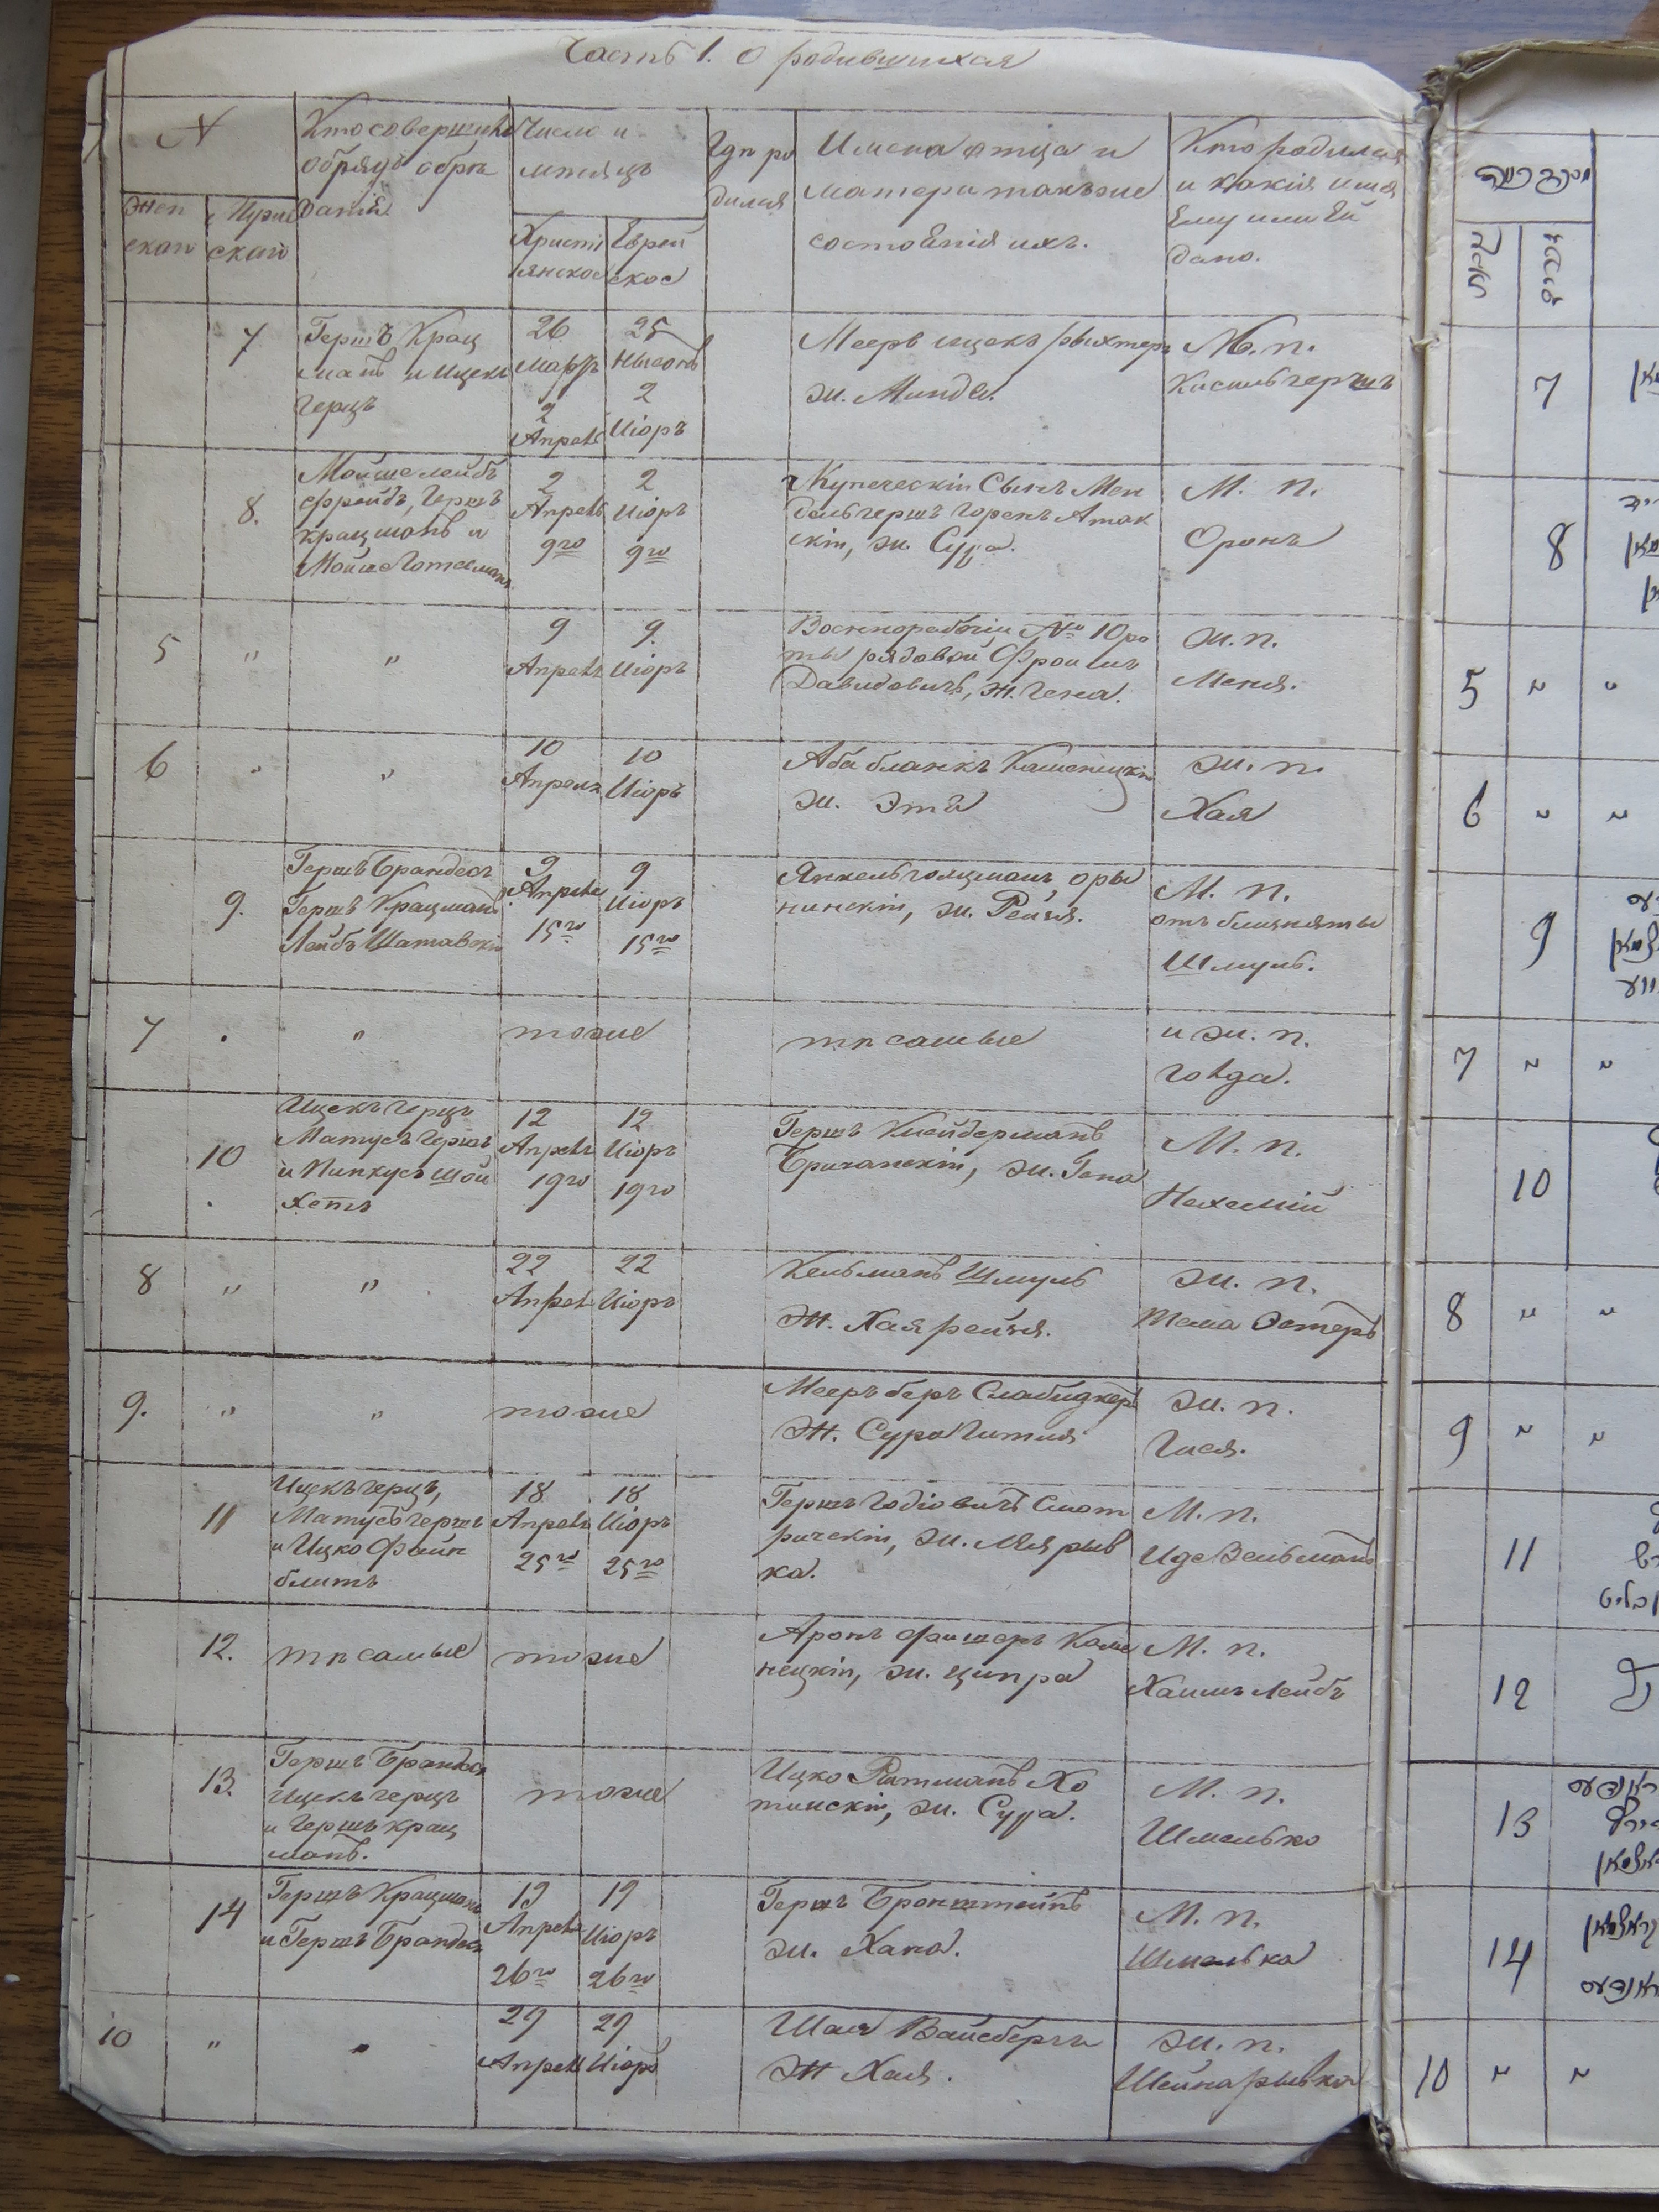 Часть 1. О родившихся
N
Женскаго
Мужескаго
Кто совершилъ
обрядъ обрѣ
занія
Число и
мѣсяцъ
Христі
янское
Еврей
ское
Гдѣ ро
дился
Имена отца и
матери такъже
состоянія ихъ.
Кто родился
и какія имя
Ему или Ей
дано.
7
Гершъ Крац
манъ и Ицекъ
Герцъ
26
Мартъ
2
Апрель
25
Нысонъ
2
Иіоръ
Мееръ Ицекъ Рыхтеръ
ж. Минде.
М. п.
Кисиль Гершъ
8.
Мойше Лейбъ
Фрейдъ, Гершъ
Крацманъ и
2
Апрель
9го
2
Иіоръ
9го
Купеческій Сынъ Мен
дель Гершъ Горенъ Атак
скій, ж. Сура.
М. п.
Оронъ
5
"
"
9
Апрель
9.
Иіоръ
Военнорабочій № 10 ро
ты рядовой Фроимъ
Давидовичъ, ж. Гена.
ж. п.
Меня.
6
"
"
10
Апрель
10
Иіоръ
Аба Бланкъ Каменецкій
ж. Эта
ж. п.
Хая
9.
Гершъ Брандесъ
Гершъ Крацманъ
Лейбъ Шатавскій
9
Апрель
15го
9
Иіоръ
15го
Янкель Голцманъ Оры
нинскій, ж. Рейзя.
М. п.
отъ близняты
Шмуль.
7
"
"
тоже
тѣ самые
и ж. п.
Голда.
10
Ицекъ Герцъ
Матусъ Гершъ
и Пинкусъ Шой
хетъ
12
Апрель
19го
12
Иіоръ
19го
Гершъ Клейдерманъ
Бричанскій, ж. Гена
М. п.
Нехемій
8
"
"
22
Апрель
22
Иіоръ
Кельманъ Шмуль
Ж. Хая Рейзя.
ж. п.
Тема Эстеръ
9.
"
"
тоже
Мееръ Беръ Слабидкеръ
Ж. Сура Гитля
ж. п.
Гися.
11
Ицекъ Герцъ,
Матусъ Гершъ
и Ицко Файн
блитъ
18
Апрель
25го
18
Иіоръ
25го
Гершъ Годіовичъ Смот
ричскій, ж. Мля Рыв
ка.
М. п.
Иде Зельманъ
12.
тѣ самые
тоже
Аронъ Фишеръ Каме
нецкій, ж. Ципра
М. п.
Хаимъ Лейбъ
13.
Гершъ Брандесъ
Ицекъ Герцъ
и Гершъ Крац
манъ.
тоже
Ицко Ратманъ Хо
тинскій, ж. Сура.
М. п.
Шмелько
14
Гершъ Крацманъ
и Гершъ Брандесъ
19
Апрель
26го
19
Иіоръ
26го
Гершъ Бронштейнъ
ж. Хана.
М. п.
Шмелька
10
"
"
29
Апрель
29
Иіоръ
Шая Вайсбергъ
Ж Хая.
ж. п.
Шейна Рывка
7
8
5 " "
6 " "
9
7 " "
10
8 " "
9 " "
11
12
13
14
10 " "